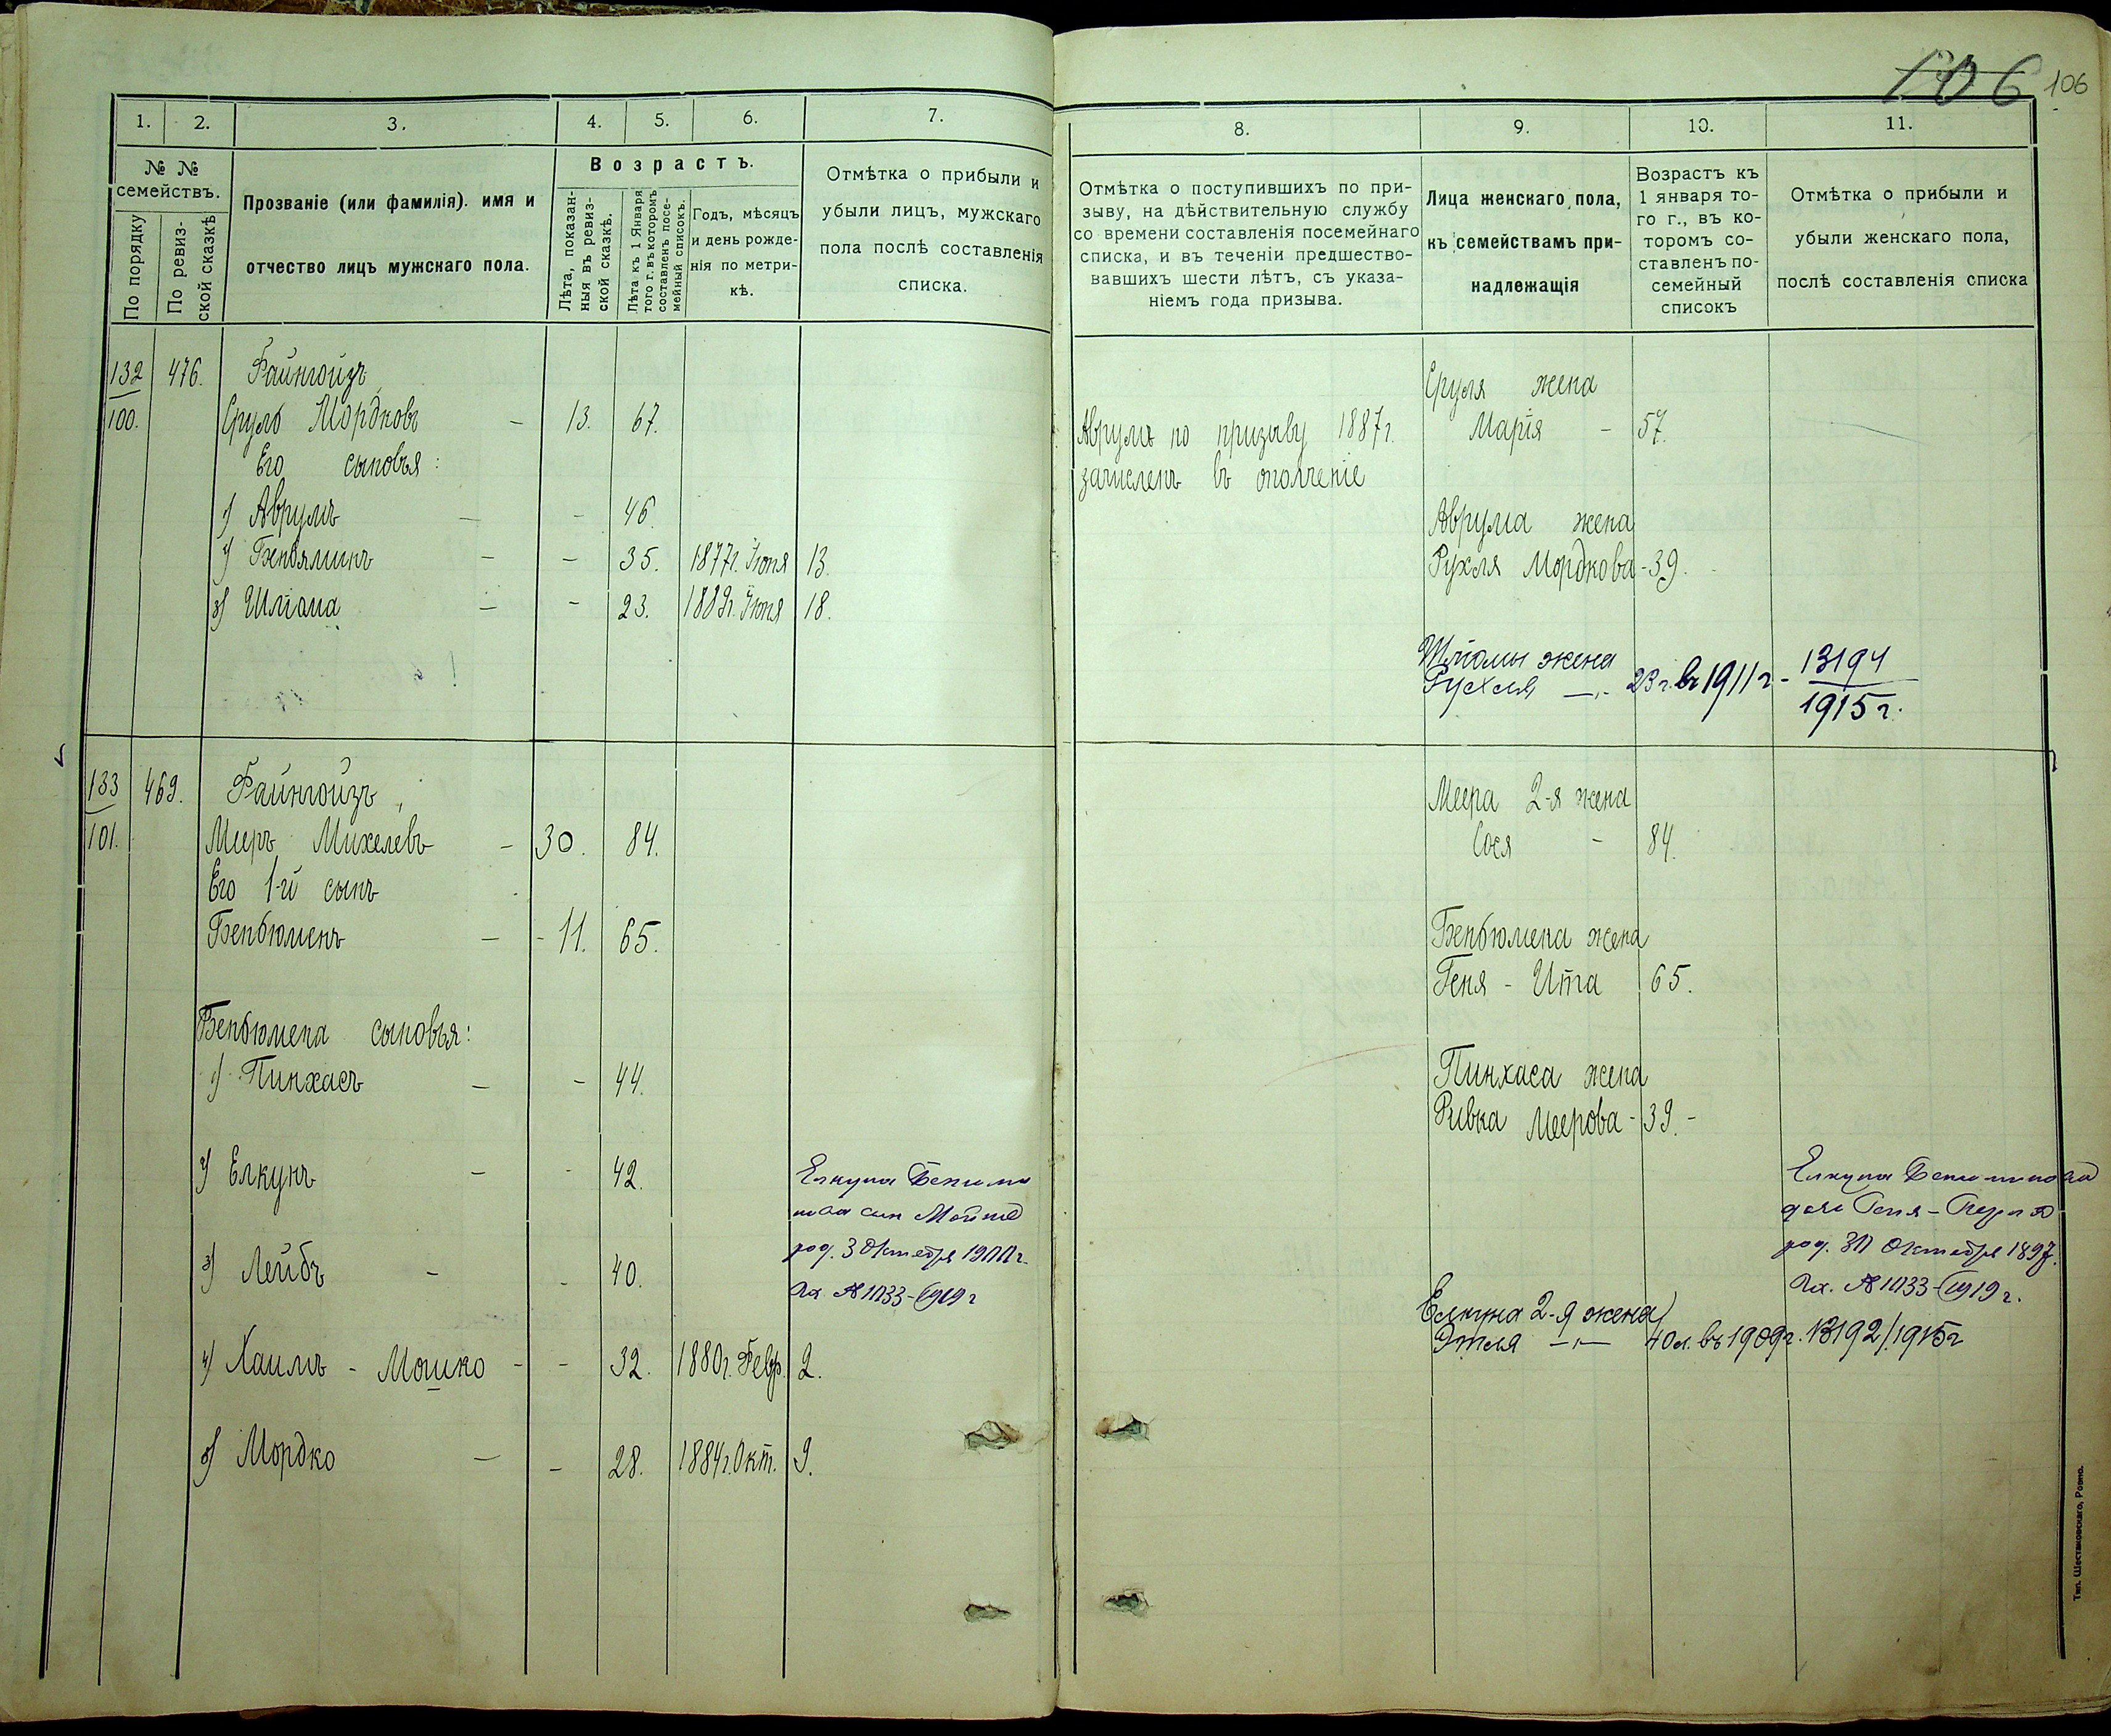 106 106
1. 2. 3. 4. 5. 6. 7.
№ №
семействъ.
По порядку
По ревиз-
ской сказкѣ
Прозваніе (или фамилія). имя и
отчество лицъ мужскаго пола.
Возрастъ.
Лѣта, показан-
ныя въ ревиз-
ской сказкѣ.
Лѣта къ 1 Января
того г. въ которомъ
составленъ посе-
мейный списокъ.
Годъ, мѣсяцъ
и день рожде-
нія по метри-
кѣ.
Отмѣтка о прибыли и
убыли лицъ, мужскаго
пола послѣ составленія
списка.
132 476. Файнгойзъ
100. Сруль Мордковъ - 13. 67.
Его сыновья:
1) Аврумъ - - 46.
2) Бенъяминъ - - 35. 1877г. Іюня 13.
3) Шлома - - 23. 1889г. Іюня 18.
133 469. Файнгойзъ,
101. Мееръ Михелевъ - 30. 84.
Его 1-й сынъ
Бенюменъ - - 11. 65.
Бенюмена сыновья:
1) Пинхасъ - - 44.
2) Елкунъ - - 42.
3) Лейбъ - - 40.
4) Хаимъ - Мошко - - 32. 1880г. Февр. 2.
5) Мордко - - 28. 1884г. Окт. 9.
Елкуна
сын
род. 3 Октября 1900 г.
Вх. № 1033-1919 г
8. 9. 10. 11.
Отмѣтка о поступившихъ по при-
зыву, на дѣйствительную службу
со времени составленія посемейнаго
списка, и въ теченіи предшество-
вавшихъ шести лѣтъ, съ указа-
ніемъ года призыва.
Лица женскаго пола,
къ семействамъ при-
надлежащія
Возрастъ къ
1 января то-
го г., въ ко-
торомъ со-
ставленъ по-
семейный
списокъ
Отмѣтка о прибыли и
убыли женскаго пола,
послѣ составленія списка
Аврумъ по призыву 1887г.
зачисленъ въ ополченіе
Сруля жена
Марія - 57.
Аврума жена
Рухля Мордкова - 39.
Шломы жена
Рухля -"- 23 г. въ 1911 г - 13194
1915 г.
Меера 2-я жена
Сося - 84.
Бенюмена жена
Геня - Ита 65.
Пинхаса жена
Ривка Меерова - 39. -
Елкуна 2-я жена
Этля -"- 40 л. въ 1909 г. 13192/1915 г
Елкуна
Геня - Перля
род. 30 Октября 1897.
Вх. № 1033-1919 г.
Тип. Шестаковскаго, Ровна.